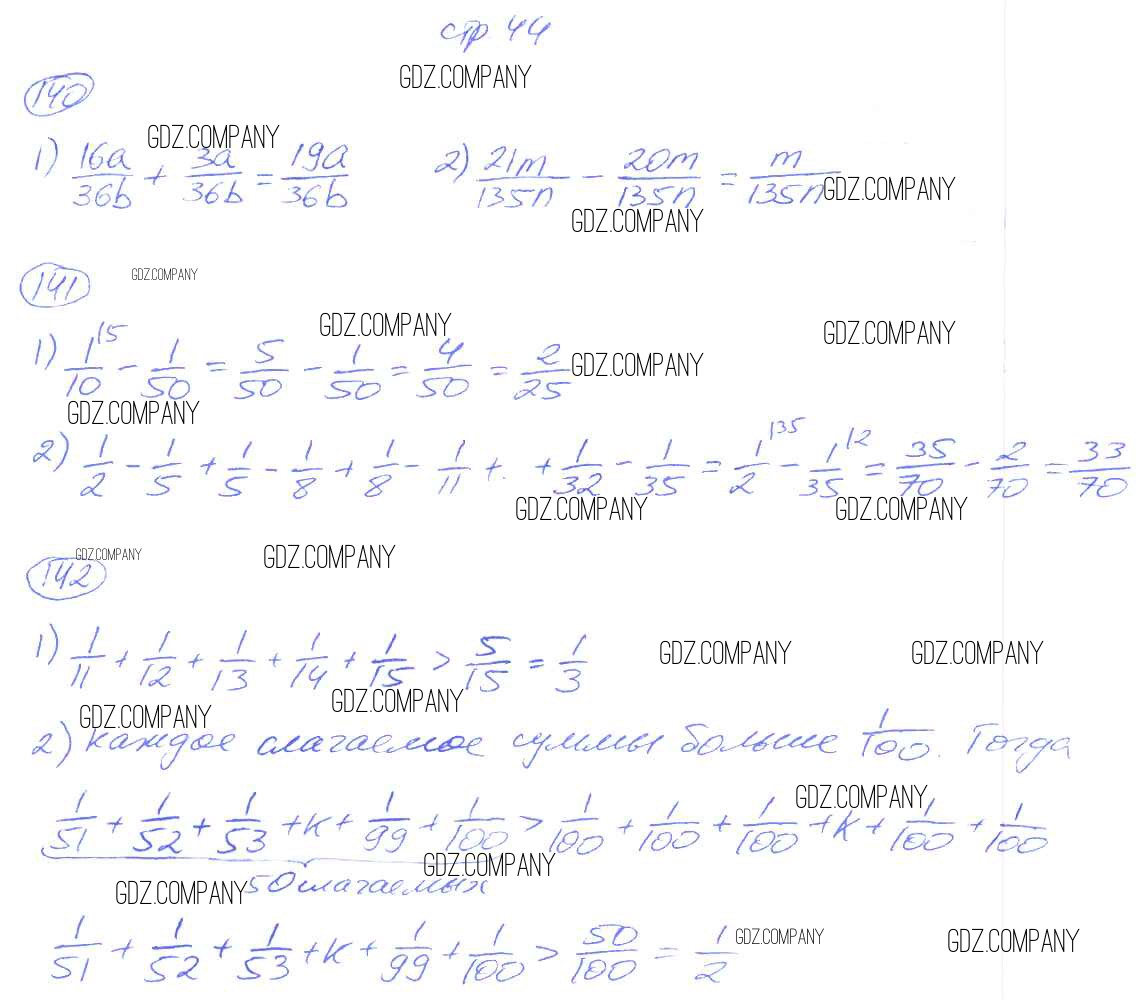 стр 44
GDZ.COMPANY
140
GDZ.COMPANY
1) 16a/36b + 3a/36b = 19a/36b 2) 21m/135n - 20m/135n = m/135n GDZ.COMPANY
GDZ.COMPANY
141 GDZ.COMPANY
GDZ.COMPANY GDZ.COMPANY
1) 1/10 ^(15 - 1/50 = 5/50 - 1/50 = 4/50 = 2/25 GDZ.COMPANY
GDZ.COMPANY
2) 1/2 - 1/5 + 1/5 - 1/8 + 1/8 - 1/11 + .. + 1/32 - 1/35 = 1/2 ^(135 - 1/35 ^(12 = 35/70 - 2/70 = 33/70
GDZ.COMPANY GDZ.COMPANY
GDZ.COMPANY GDZ.COMPANY
142
1) 1/11 + 1/12 + 1/13 + 1/14 + 1/15 > 5/15 = 1/3 GDZ.COMPANY GDZ.COMPANY
GDZ.COMPANY GDZ.COMPANY
2) каждое слагаемое суммы больше 1/100. Тогда
GDZ.COMPANY
1/51 + 1/52 + 1/53 + к + 1/99 + 1/100 > 1/100 + 1/100 + 1/100 + к + 1/100 + 1/100
GDZ.COMPANY
GDZ.COMPANY 50 слагаемых
1/51 + 1/52 + 1/53 + к + 1/99 + 1/100 > 50/100 = 1/2 GDZ.COMPANY GDZ.COMPANY